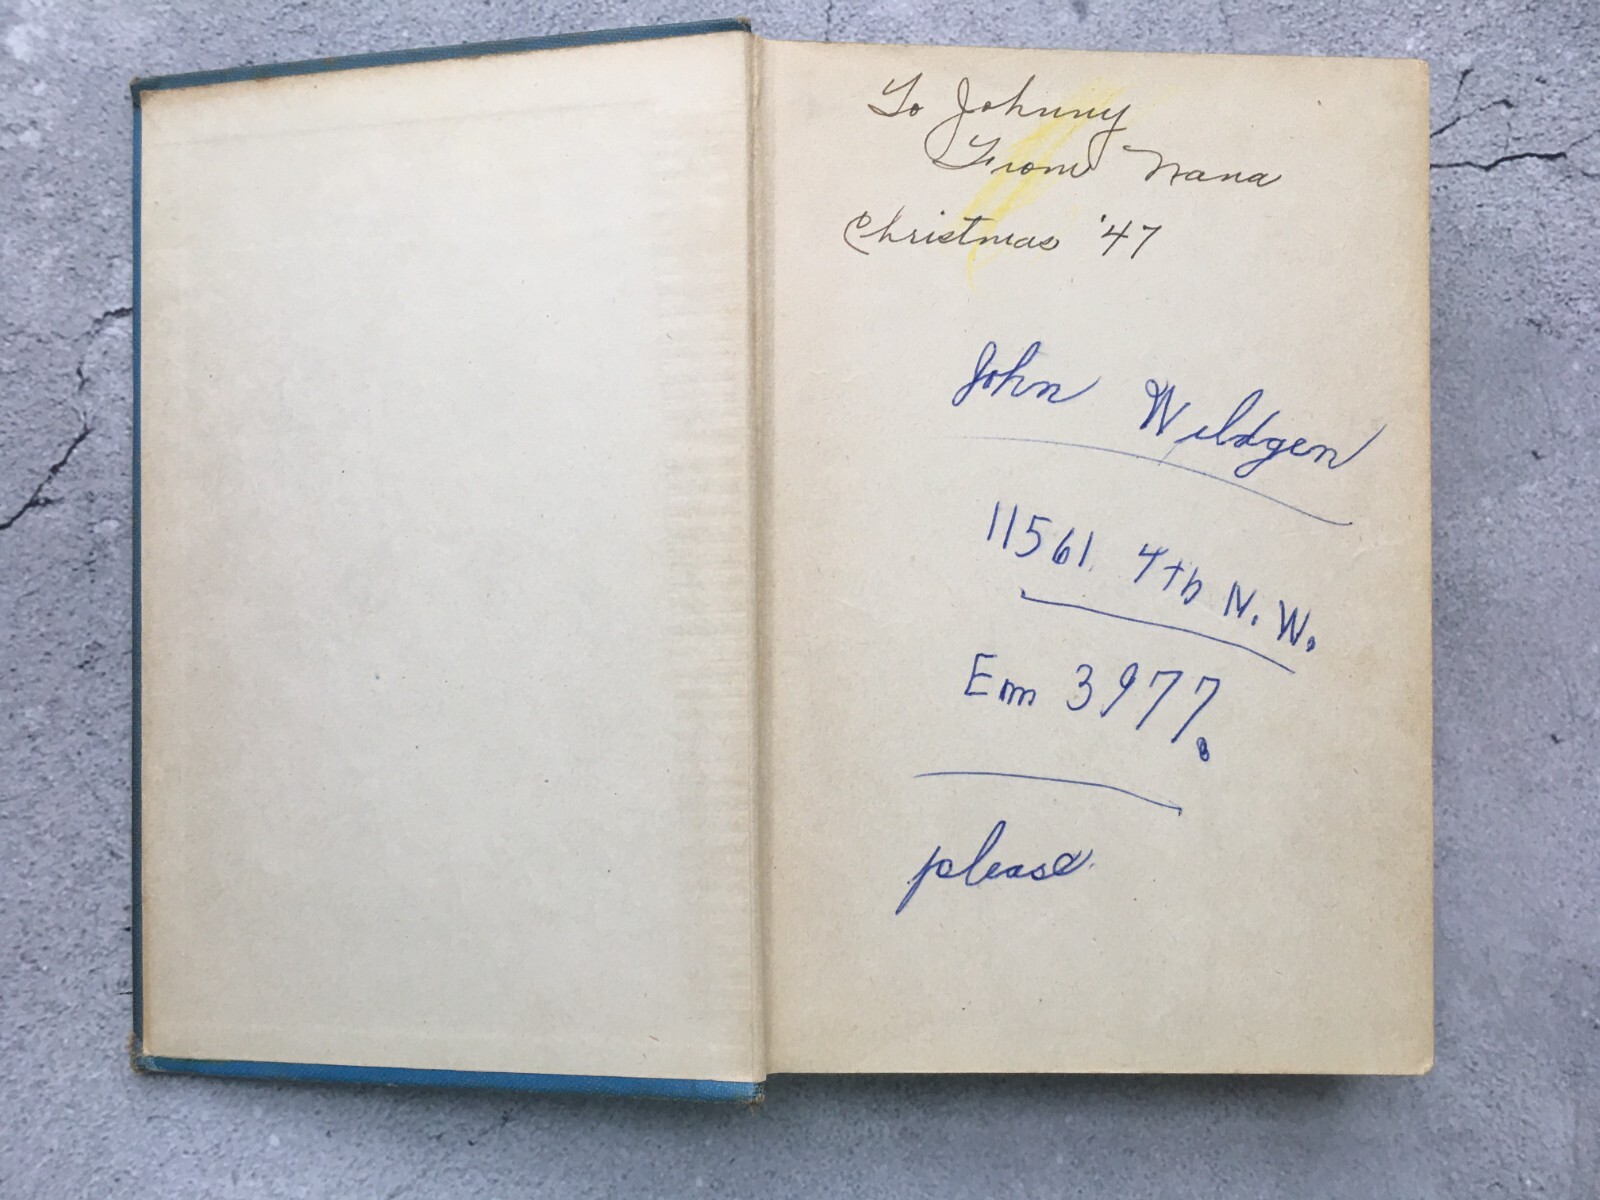 To Johnny
From Nana
Christmas '47
John Wildgen
11561 4th N.W.
Em 3977.
please